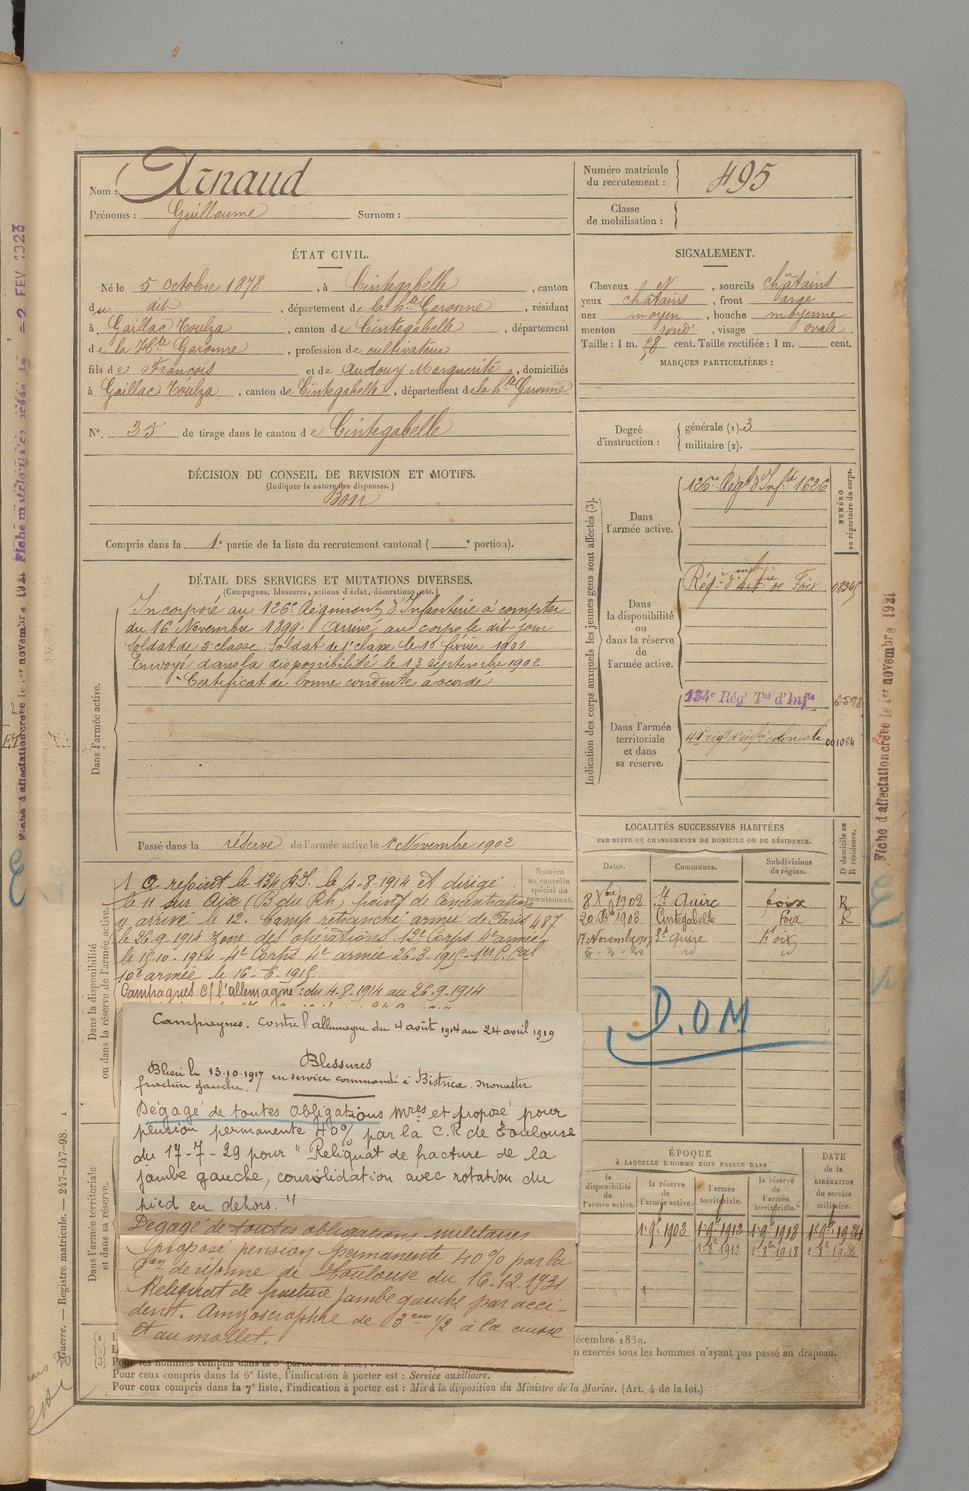 Nom : Arnaud
Prénoms : Guillaume Surnom :
Numéro matricule du recrutement : 495
Classe de mobilisation :
ÉTAT CIVIL.
Né le 5 octobre 1878, à Cintegabelle, canton
du dit, département de la hte Garonne, résidant
à Gaillac Toulza, canton de Cintegabelle, département
de la Hte Garonne, profession de cultivateur
fils de François et de Audouy Marguerite, domiciliés
à Gaillac Toulza, canton de Cintegabelle, département de la hte Garonne
N°. 25 de tirage dans le canton de Cintegabelle
SIGNALEMENT.
Cheveux et, sourcils châtains
yeux châtains, front large
nez moyen, bouche moyenne
menton rond, visage ovale
Taille : 1 m. 58 cent. Taille rectifiée : 1 m. cent.
MARQUES PARTICULIÈRES :
Degré d'instruction : générale (1). 3
militaire (2).
DÉCISION DU CONSEIL DE REVISION ET MOTIFS.
(Indiquer la nature des dispenses.)
Bon
Compris dans la 1e partie de la liste du recrutement cantonal ( e portion).
DÉTAIL DES SERVICES ET MUTATIONS DIVERSES.
(Campagnes, blessures, actions d'éclat, décorations, etc.)
Dans l'armée active.
Incorporé au 126e Régiment d'Infanterie à compter
du 16 Novembre 1899. Arrivé au corps le dit jour
Soldat de 2e classe. Soldat de 1e classe le 10 février 1901
Envoyé dans la disponibilité le 13 Septembre 1902
Certificat de bonne conduite accordé
Passé dans la réserve de l'armée active le 1 Novembre 1902
Indication des corps auxquels les jeunes gens sont affectés (3).
NUMÉRO au répertoire du corps.
Dans l'armée active.
126e Régt d'Infie 1626
Dans la disponibilité ou dans la réserve de l'armée active.
Régt d'inf de Foix
Dans l'armée territoriale et dans sa réserve.
134e Régt Tal d'Infie
LOCALITÉS SUCCESSIVES HABITÉES
PAR SUITE DE CHANGEMENTS DE DOMICILE OU DE RÉSIDENCE.
Dates. Communes. Subdivisions de région. D domicile ou R résidence.
8 Xbre 1902 St Quirc foix R
1903 Cintegabelle Foix R
17 Novembre St Quirc Foix
D.O.M
Dans la disponibilité ou dans la réserve de l'armée active.
Numéro au contrôle spécial du recrutement.
487
A rejoint le 134 R.I. le 4-8-1914 et dirigé
le 11 sur Aix (B du Rh) point de concentration
y arrivé le 12. Camp retranché armée de Paris
le 26.9.1914 Zone des opérations 12e Corps 4e armée
le 15-10-1914 4e Corps 4e armée 26-8-1915
10e armée le 16-6-1915
Campagnes c/ l'allemagne : du 4-8-1914 au 26-9-1914
Campagnes. Contre l'allemagne du 4 août 1914 au 24 avril 1919
Blessures
Blessé le 13-10-1917 en service commandé à Bistrica. Monastir
fracture gauche.
Dégagé de toutes obligations Mres et proposé pour
pension permanente 40% par la C.R de Toulouse
du 17-7-29 pour "Reliquat de fracture de la
jambe gauche, consolidation avec rotation du
pied en dehors."
Dégagé de toutes obligations militaires
Proposé pension permanente 40% par la
Con de réforme de Toulouse du 16.12.1931
Reliquat de fracture jambe gauche par acci-
dent. Amyotrophie de 3 cm 1/2 à la cuisse
et au mollet.
Dans l'armée territoriale et dans sa réserve.
ÉPOQUE
À LAQUELLE L'HOMME DOIT PASSER DANS
la disponibilité de l'armée active.
la réserve de l'armée active.
l'armée territoriale.
la réserve de l'armée territoriale.
DATE de la LIBÉRATION du service militaire.
décembre 1889.
n exercés tous les hommes n'ayant pas passé au drapeau.
Pour ceux compris dans la 6e liste, l'indication à porter est : Service auxiliaire.
Pour ceux compris dans la 7e liste, l'indication à porter est : Mis à la disposition du Ministre de la Marine. (Art. 4 de la loi.)
Guerre. — Registre matricule. — 247-147-98.
Fiche d'affectation créée le 1er novembre 1921
2 FEV 1923